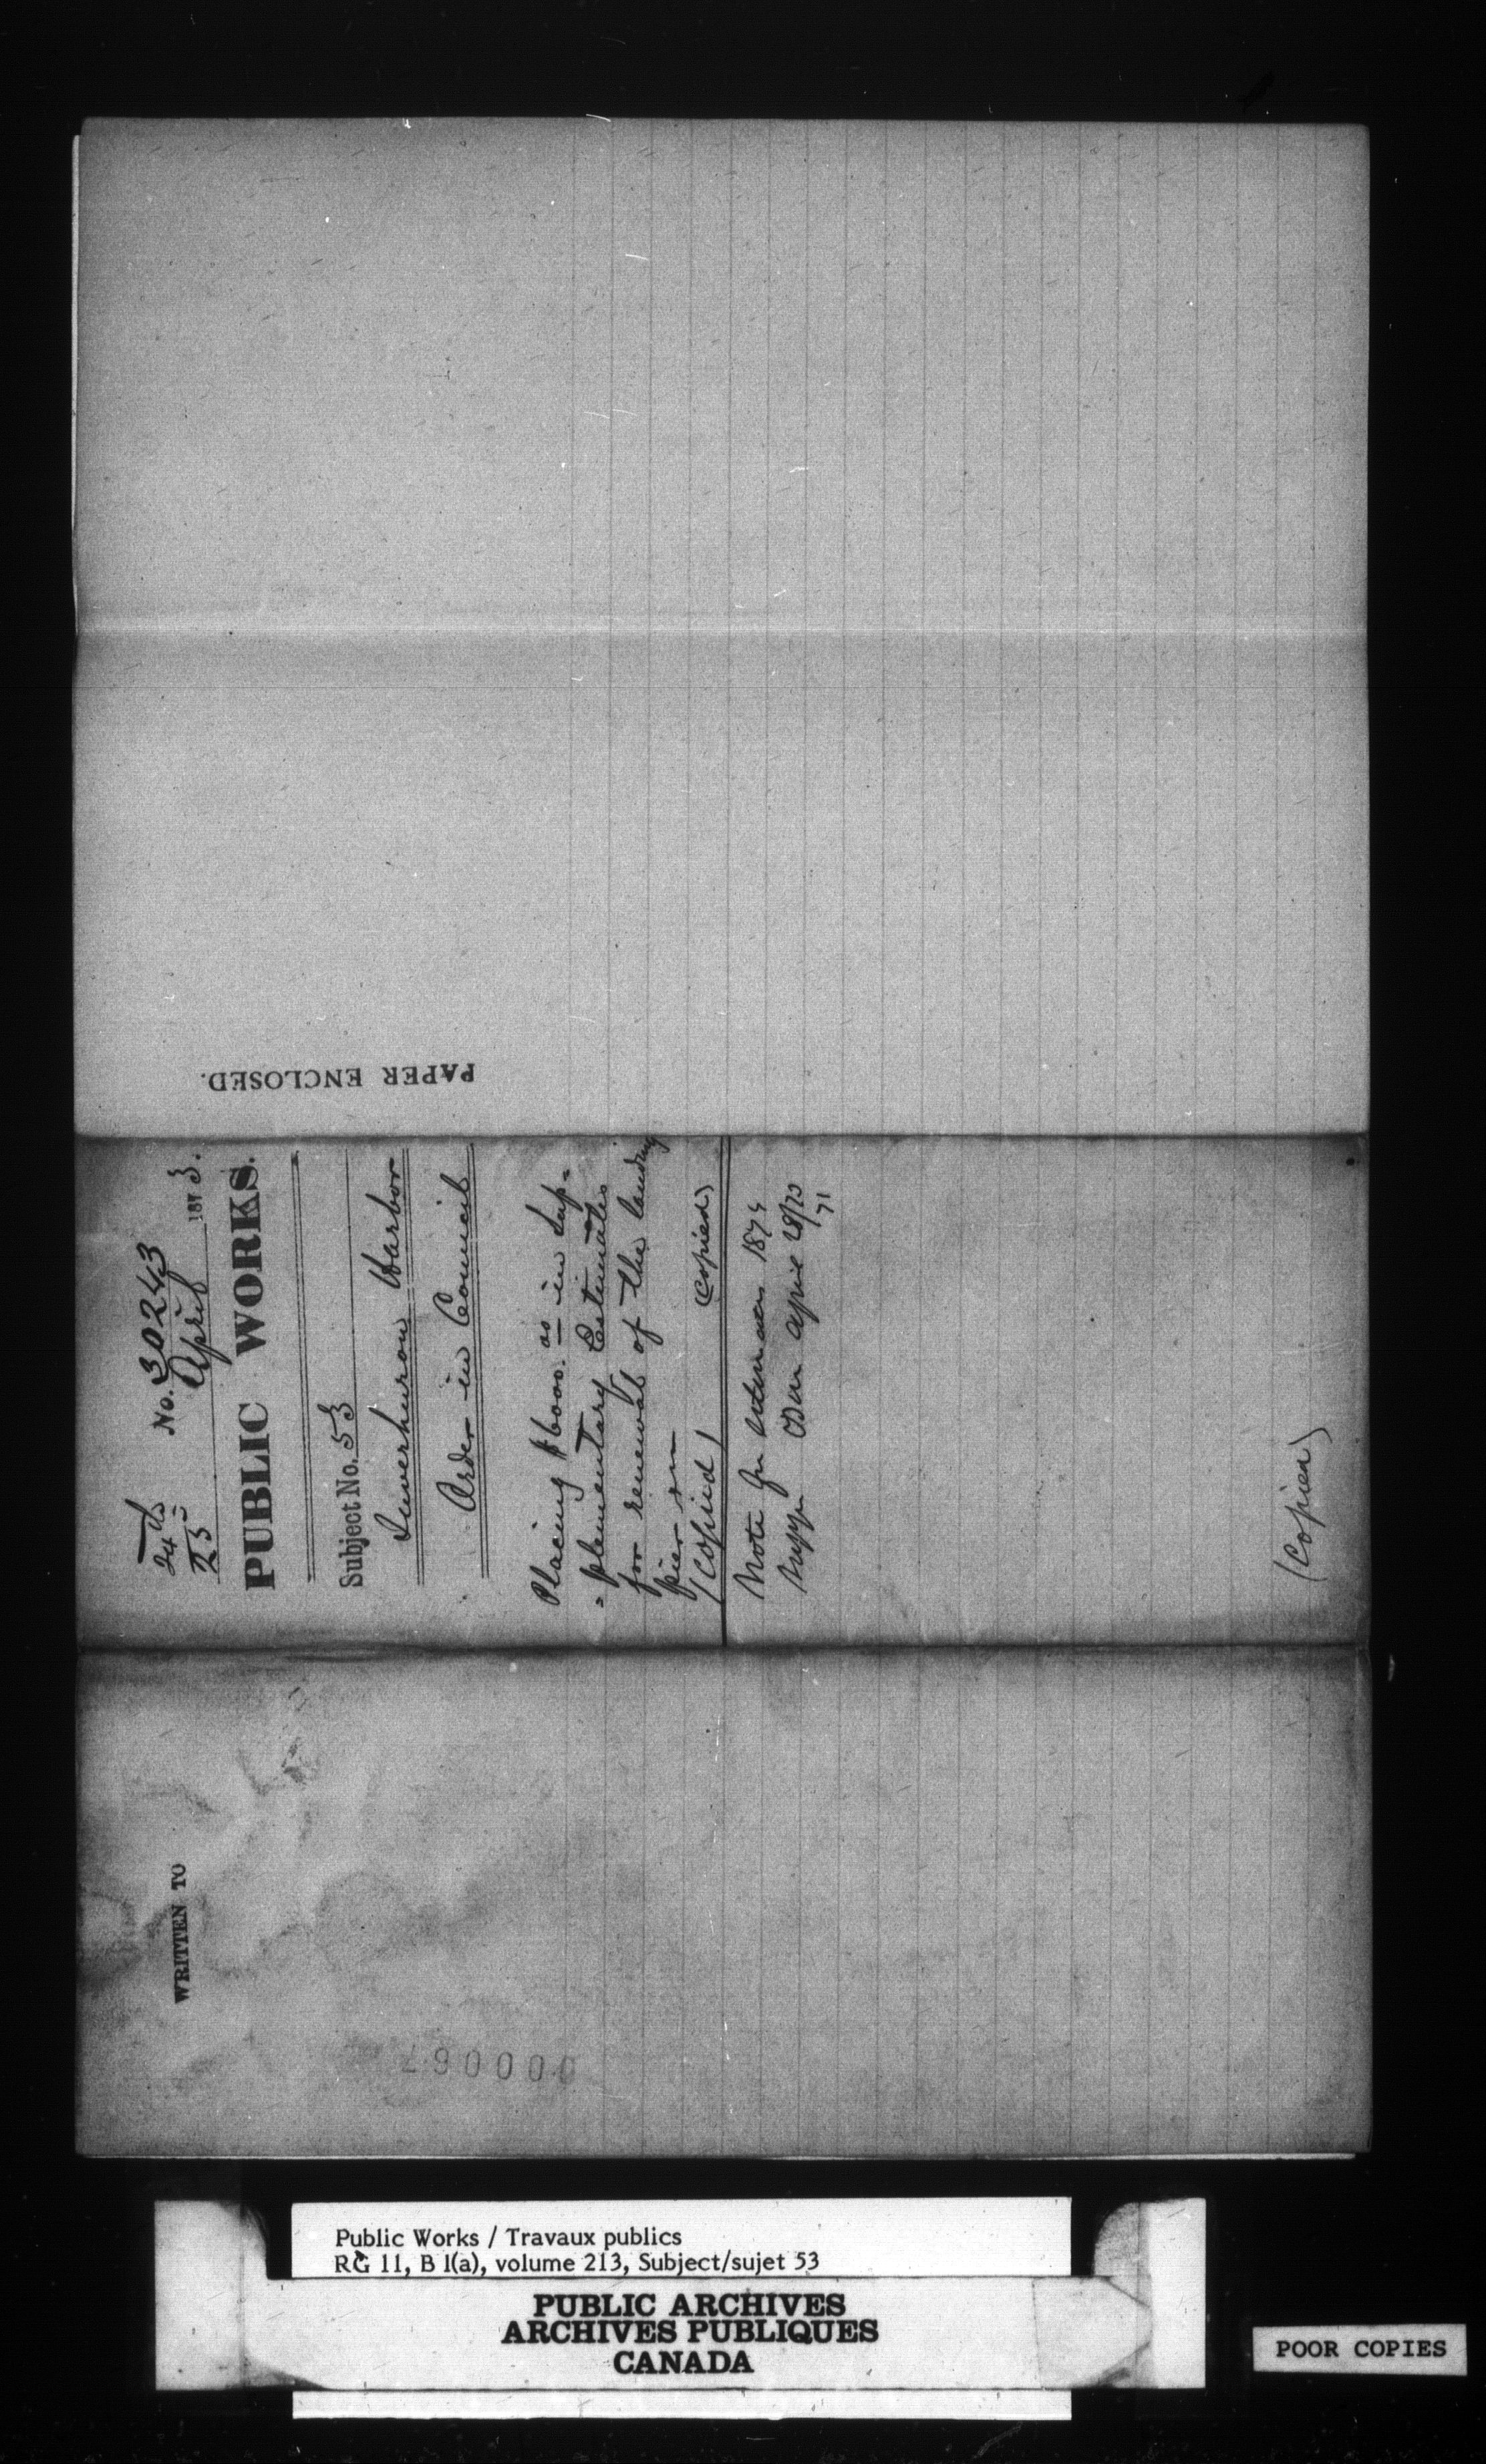 PAPER ENCLOSED.
24th
No. 30243
23
April 1873.
PUBLIC WORKS.
Subject No. 53
Inverhuron Harbor
Order in Council
Placing $6000. as in Sup-
=plementary Estimates
for renewal of the landing
pier
(Copied)
(Copied)
Note for 1874
April 28/73
71
(Copied)
WRITTEN TO
000067
Public Works / Travaux publics
RG 11, B 1(a), volume 213, Subject/sujet 53
PUBLIC ARCHIVES
ARCHIVES PUBLIQUES
CANADA
POOR COPIES